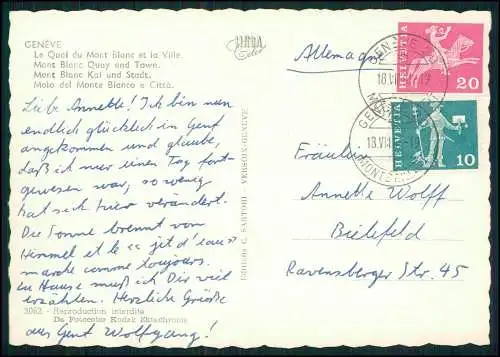 GENÈVE
Le Quai du Mont Blanc et la Ville.
Mont Blanc Quay and Town.
Mont Blanc Kai und Stadt.
Molo del Monte Bianco e Città.
Color
Liebe Annette! Ich bin nun
endlich glücklich in Genf
angekommen und glaube,
daß ich nur einen Tag fort-
gewesen war, so wenig
hat sich hier verändert.
Die Sonne brennt vom
Himmel et le "jet d'eau"
marche comme toujours.
zu Hause muß ich Dir viel
erzählen. Herzliche Grüße
3062 - Reproduction interdite
De Fotocolor Kodak Ektachrome
aus Genf Wolfgang!
Editions E. SARTORI - VERSOIX-GENÈVE
Allemagne
HELVETIA
20
HELVETIA
10
18.VI
18.VI
Fräulein
Annette Wolff
Bielefeld
Ravensberger Str. 45